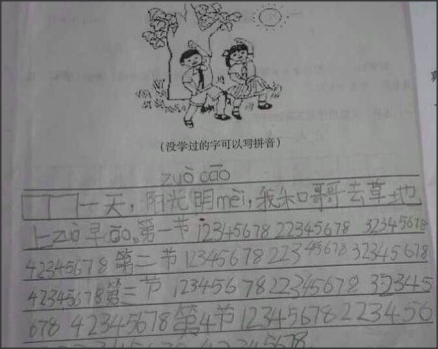 (没学过的字可以写拼音)
zuò cāo
一天,阳光明mèi,我和哥哥去草地
上zuò早cāo。第一节12345678 22345678 32345678
42345678第二节12345678 22345678 32345678
42345678第三节 12345678 22345678 32345
678 42345678第4节12345678 223456